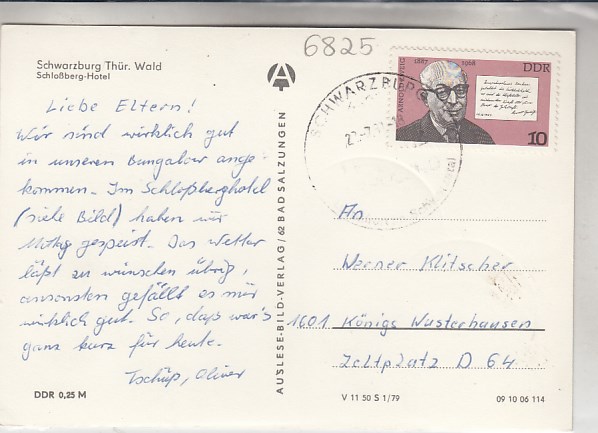 6825
Schwarzburg Thür. Wald
Schloßberg-Hotel
Liebe Eltern!
Wir sind wirklich gut
in unseren Bungalow ange-
kommen. Im Schloßberghotel
(siehe Bild) haben wir
Mittag gespeist. Das Wetter
läßt zu wünschen übrig,
ansonsten gefällt es mir
wirklich gut. So, daß war's
ganz kurz für heute.
Tschüß, Oliver
DDR 0,25 M
AUSLESE-BILD-VERLAG / 62 BAD SALZUNGEN
SCHWARZBURG
ARNOLD ZWEIG
1887 1968
DDR
10
An
Werner Klitscher
1601 Königs Wusterhausen
Zeltplatz D 64
V 11 50 S 1/79
09 10 06 114